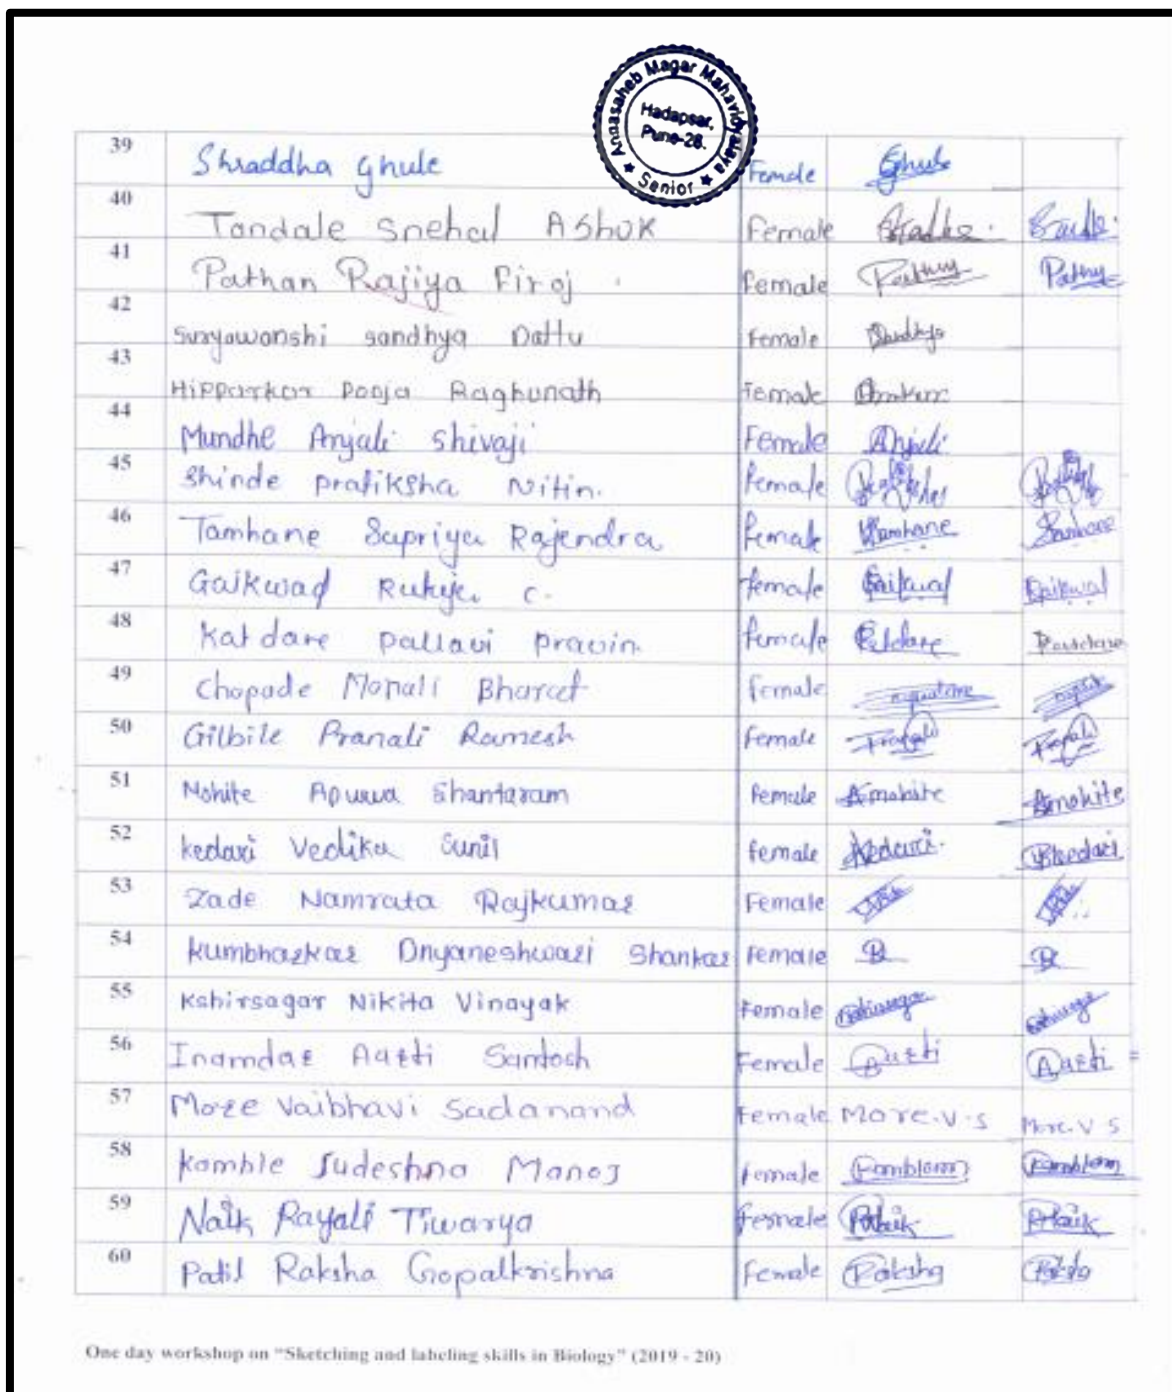 Annasaheb Magar Mahavidyalaya
Hadapsar,
Pune-28.
★ Senior ★
39 Shraddha Ghule Female Ghule
40 Tandale Snehal Ashok Female
41 Pathan Rajiya Firoj female
42 Suryawanshi sandhya Dattu Female Sandhya
43 Hipparkar Pooja Raghunath Female
44 Mundhe Anjali Shivaji Female Anjali
45 Shinde pratiksha Nitin. female
46 Tamhane Supriya Rajendra female Tamhane Tamhane
47 Gaikwad C. female Gaikwad Gaikwad
48 Katdare pallavi pravin. female
49 Chopade Monali Bharat female
50 Gilbile Pranali Ramesh female Pranali Pranali
51 Mohite Apurva Shantaram female Amohite Amohite
52 kedari Vedika Sunil female Kedari. Vkedari
53 Zade Namrata Rajkumar Female
54 kumbharkar Dnyaneshwari Shankar Female
55 Kshirsagar Nikita Vinayak Female
56 Inamdar Aarti Santosh Female Aarti Aarti
57 More Vaibhavi Sadanand Female More.V.S More.V S
58 Kamble Sudeshna Manoj female
59 Naik Rayali Tiwarya female
60 Patil Raksha Gopalkrishna female Raksha
One day workshop on “Sketching and labeling skills in Biology” (2019 - 20)